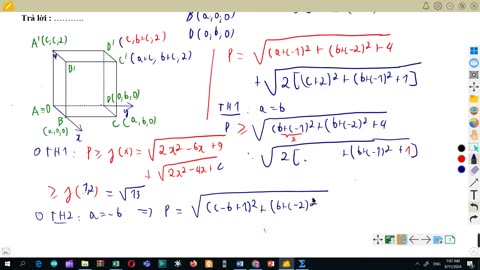 Trả lời : ...........
B (a,0,0)
D (0,b,0)
A'(c,c,2)
D' (c,b+c,2)
B'
C' (a+c, b+c,2)
A≡O
D(0,b,0)
y
B
(a,0,0)
C (a,b,0)
x
P = √((a+c-1)² + (b+c-2)² + 4)
+ √(2[(c+2)² + (b+c-1)² + 1])
TH1 : a=b
P ≥ √((b+c-1)² + (b+c-2)² + 4)
x
√(2[ . + (b+c-1)² + 1])
0 TH1 : P ≥ g(x) = √(2x² - 6x + 9)
+ √(2x² - 4x + c
≥ g(1,2) = √13
0 TH2 : a=-b ⇒ P = √((c-b+1)² + (b+c-2)²
7:07 AM
9/11/2024